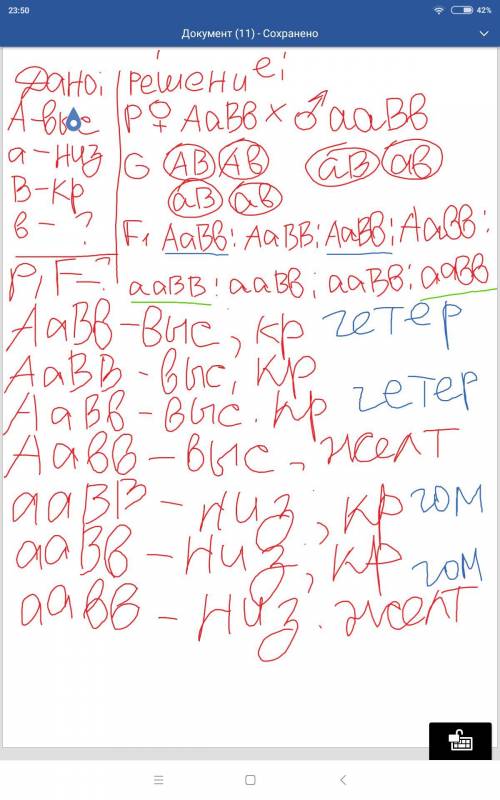 23:50 42%
Документ (11) - Сохранено
Дано: Решение:
А-выс Р ♀ АаВв × ♂ ааВв
а-низ G АВ Ав аВ ав
В-кр аВ ав
в-? F₁ АаВв: АаВВ; АаВв; Аавв:
Р, F-? ааВВ: ааВв; ааВв; аавв
АаВв-выс, кр гетер
АаВВ-выс, кр
АаВв-выс. кр гетер
Аавв-выс, желт
ааВВ-низ, кр гом
ааВв-низ, кр
гом
аавв-низ. желт